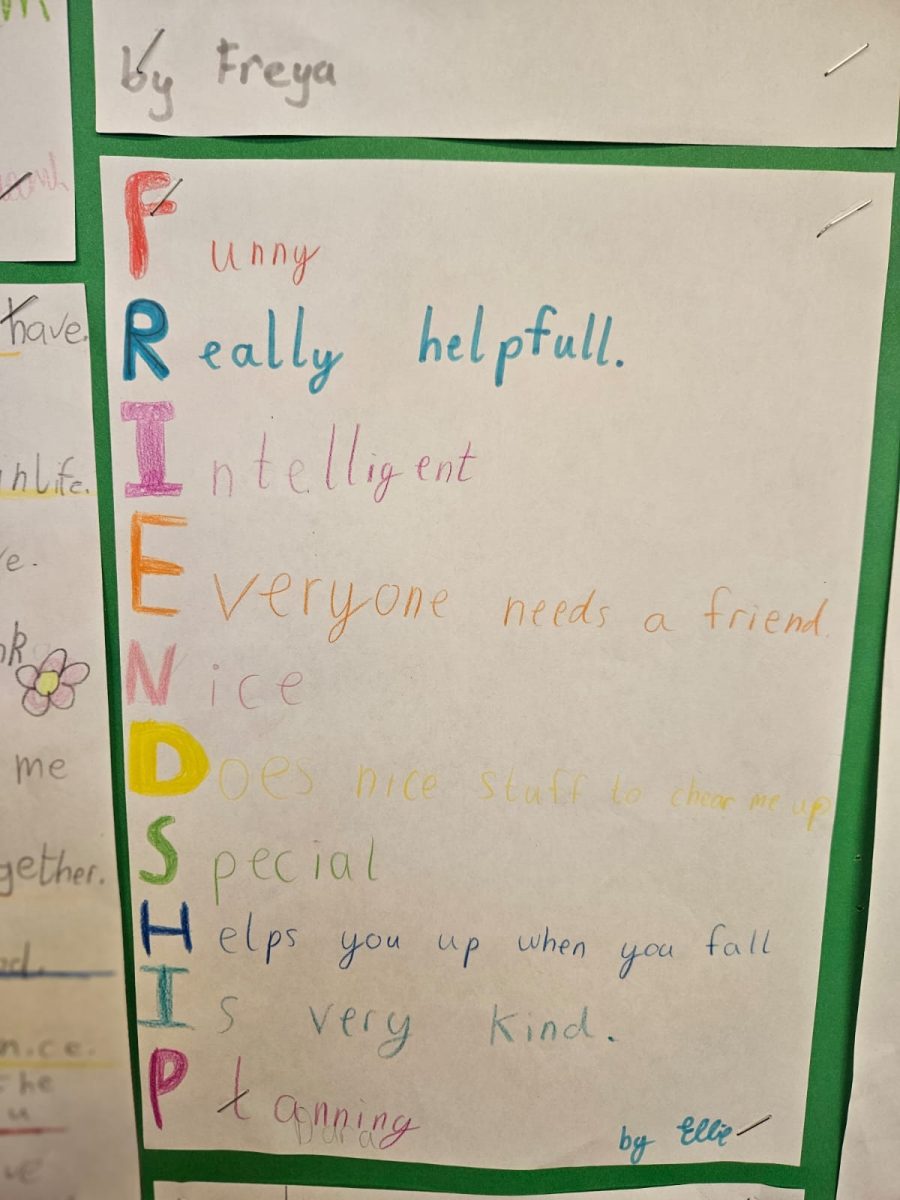 by Freya
Funny
Really helpfull.
Intelligent
Everyone needs a friend.
Nice
Does nice stuff to chear me up
Special
Helps you up when you fall
Is very kind.
Planning
by Ellie
have.
life.
me
gether.
nice.